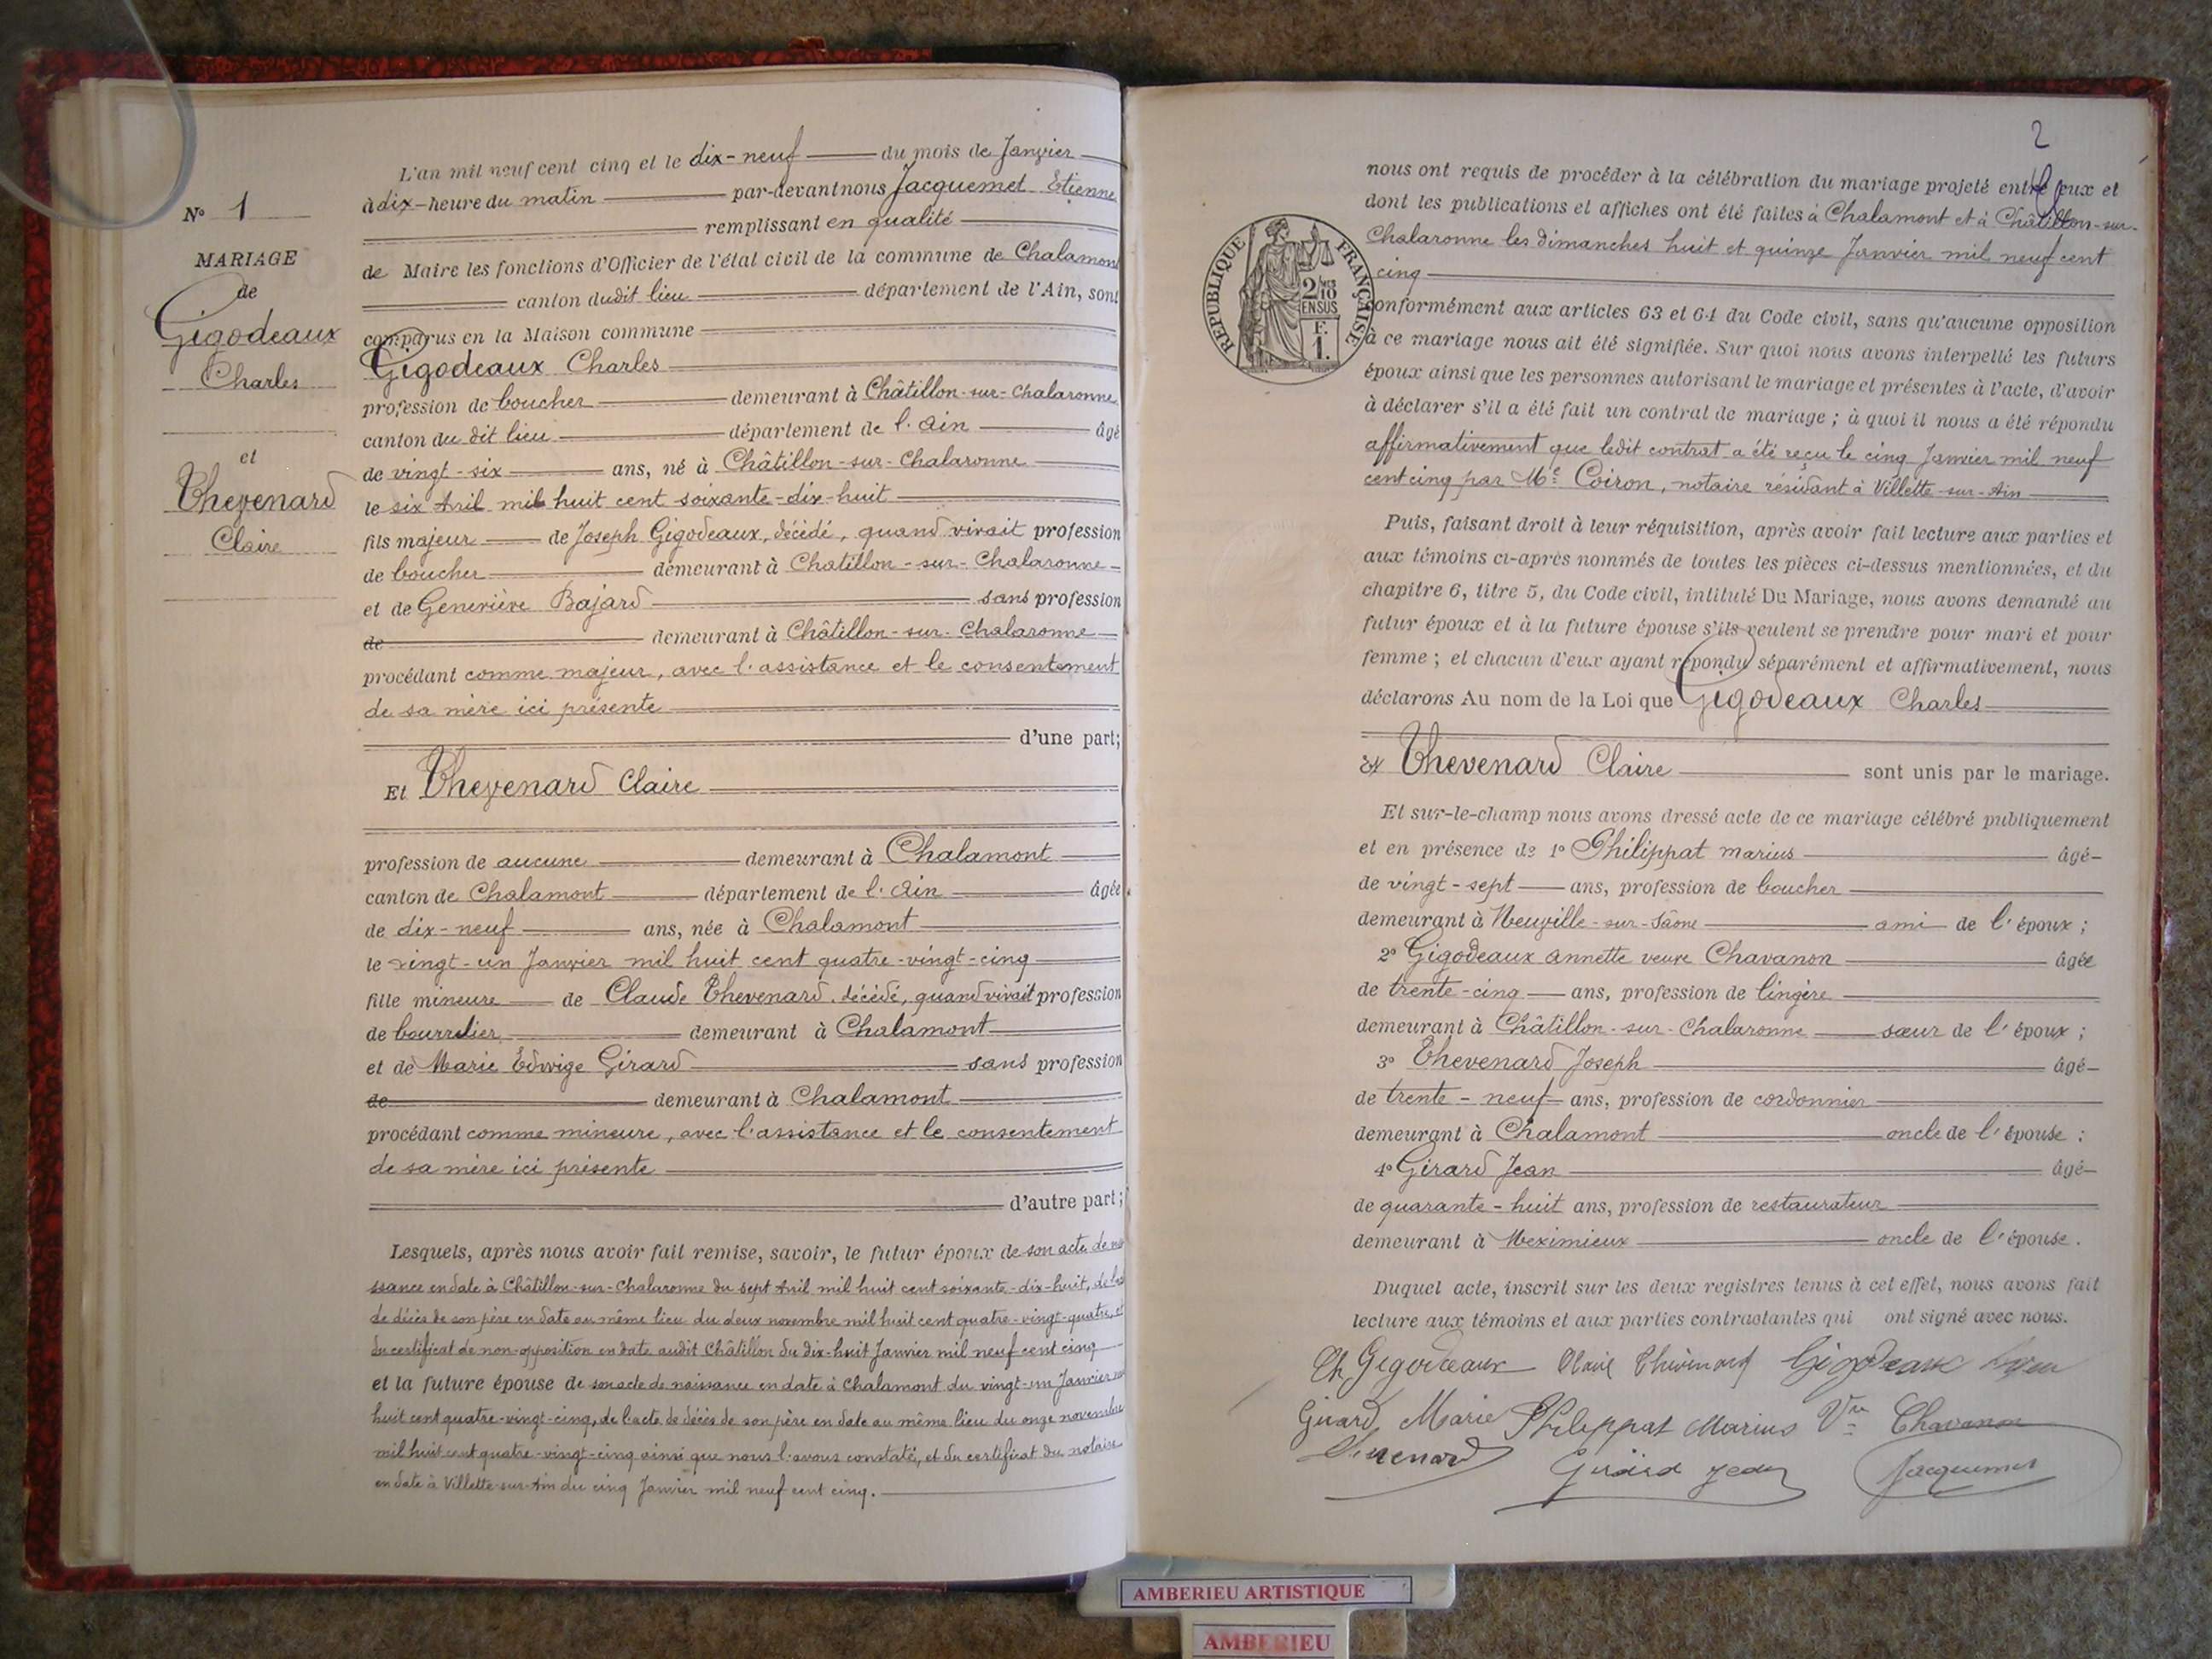 N° 1
MARIAGE
de
Gigodeaux
Charles
et
Thevenard
Claire
L'an mil neuf cent cinq et le dix-neuf du mois de Janvier
à dix-heure du matin par-devant nous Jacquemet Etienne
remplissant en qualité
de Maire les fonctions d'Officier de l'état civil de la commune de Chalamont
canton dudit lieu département de l'Ain, sont
comparus en la Maison commune
Gigodeaux Charles
profession de boucher demeurant à Châtillon-sur-Chalaronne
canton du dit lieu département de l'Ain âgé
de vingt-six ans, né à Châtillon-sur-Chalaronne
le six Avril mil huit cent soixante-dix-huit
fils majeur de Joseph Gigodeaux, décédé, quand vivait profession
de boucher demeurant à Chatillon-sur-Chalaronne
et de Geneviève Bajard sans profession
de demeurant à Châtillon-sur-Chalaronne
procédant comme majeur, avec l'assistance et le consentement
de sa mère ici présente
d'une part;
Et Thevenard Claire
profession de aucune demeurant à Chalamont
canton de Chalamont département de l'Ain âgée
de dix-neuf ans, née à Chalamont
le vingt-un Janvier mil huit cent quatre-vingt-cinq
fille mineure de Claude Thevenard, décédé, quand vivait profession
de bourrelier demeurant à Chalamont
et de Marie Edwige Girard sans profession
de demeurant à Chalamont
procédant comme mineure, avec l'assistance et le consentement
de sa mère ici présente
d'autre part;
Lesquels, après nous avoir fait remise, savoir, le futur époux de son acte de
ssance en date à Châtillon-sur-Chalaronne du sept Avril mil huit cent soixante-dix-huit, de
de décès de son père en date au même lieu du deux novembre mil huit cent quatre-vingt-quatre, et
du certificat de non-opposition en date audit Châtillon du dix-huit Janvier mil neuf cent cinq
et la future épouse de son acte de naissance en date à Chalamont du vingt-un Janvier
huit cent quatre-vingt-cinq, de l'acte de décès de son père en date au même lieu du onze novembre
mil huit cent quatre-vingt-cinq ainsi que nous l'avons constaté, et du certificat du notaire
en date à Villette-sur-Ain du cinq Janvier mil neuf cent cinq.
2
nous ont requis de procéder à la célébration du mariage projeté entre eux et
dont les publications et affiches ont été faites à Chalamont et à Châtillon-sur-
Chalaronne les dimanches huit et quinze Janvier mil neuf cent
cinq
RÉPUBLIQUE FRANÇAISE
2/10
EN SUS
F.
1.
conformément aux articles 63 et 64 du Code civil, sans qu'aucune opposition
à ce mariage nous ait été signifiée. Sur quoi nous avons interpellé les futurs
époux ainsi que les personnes autorisant le mariage et présentes à l'acte, d'avoir
à déclarer s'il a été fait un contrat de mariage ; à quoi il nous a été répondu
affirmativement que ledit contrat a été reçu le cinq Janvier mil neuf
cent cinq par Me Coiron, notaire résidant à Villette-sur-Ain
Puis, faisant droit à leur réquisition, après avoir fait lecture aux parties et
aux témoins ci-après nommés de toutes les pièces ci-dessus mentionnées, et du
chapitre 6, titre 5, du Code civil, intitulé Du Mariage, nous avons demandé au
futur époux et à la future épouse s'ils veulent se prendre pour mari et pour
femme ; et chacun d'eux ayant répondu séparément et affirmativement, nous
déclarons Au nom de la Loi que Gigodeaux Charles
et Thevenard Claire sont unis par le mariage.
Et sur-le-champ nous avons dressé acte de ce mariage célébré publiquement
et en présence de 1° Philippat marius âgé
de vingt-sept ans, profession de boucher
demeurant à Neuville-sur-Saône ami de l'époux ;
2° Gigodeaux annette veuve Chavanon âgée
de trente-cinq ans, profession de lingère
demeurant à Châtillon-sur-Chalaronne sœur de l'époux ;
3° Thevenard Joseph âgé
de trente-neuf ans, profession de cordonnier
demeurant à Chalamont oncle de l'épouse ;
4° Girard Jean âgé
de quarante-huit ans, profession de restaurateur
demeurant à Meximieux oncle de l'épouse.
Duquel acte, inscrit sur les deux registres tenus à cet effet, nous avons fait
lecture aux témoins et aux parties contractantes qui ont signé avec nous.
Ch Gigodeaux Claire Thevenard Gigodeaux
Girard Marie Philippat Marius Vve Chavanon
Thevenard Girard Jean Jacquemet
AMBERIEU ARTISTIQUE
AMBERIEU